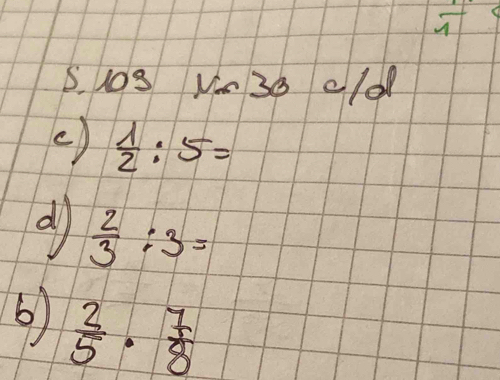 S. 109 Nr 30 c/d
c) 1/2 : 5 =
d) 2/3 : 3 =
b) 2/5 · 7/8